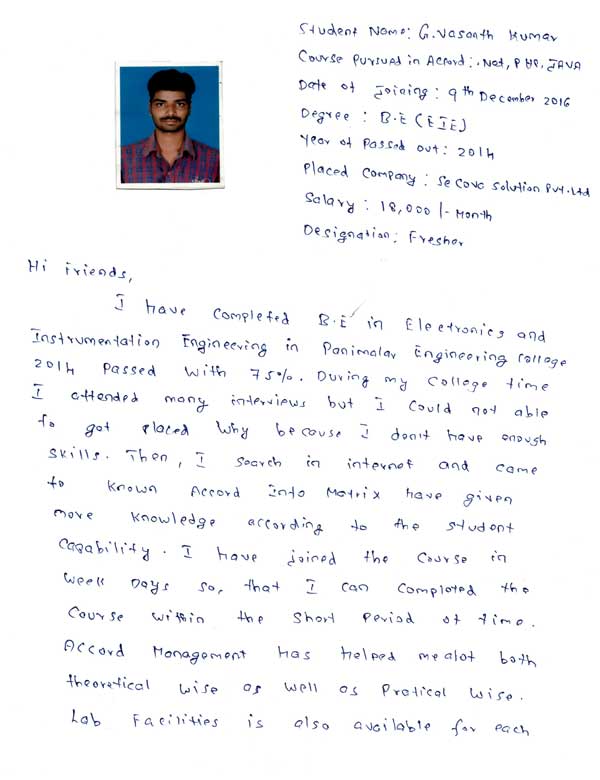 Student Name: G. Vasanth Kumar
Course Pursued in Accord: .Net, PHP, JAVA
Date of Joining: 9th December 2016
Degree : B.E (EIE)
Year of Passed out: 2014
Placed Company: Secova Solution Pvt.Ltd
Salary : 18,000 /- Month
Designation: Fresher
Hi Friends,
I have completed B.E in Electronics and
Instrumentation Engineering in Panimalar Engineering College
2014 Passed with 75%. During my College time
I attended many interviews but I Could not able
to got placed why because I don't have enough
skills. Then, I search in internet and came
to known Accord Info Matrix have given
more knowledge according to the student
Capability. I have joined the Course in
Week Days so, that I can Completed the
Course within the short Period of time.
Accord Management has helped me alot both
theoretical wise as well as Pratical wise.
Lab Facilities is also available for each